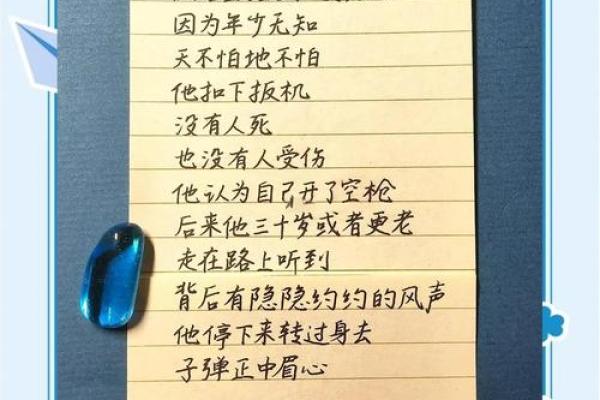 因为年少无知
天不怕地不怕
他扣下扳机
没有人死
也没有人受伤
他认为自己开了空枪
后来他三十岁或者更老
走在路上听到
背后有隐隐约约的风声
他停下来转过身去
子弹正中眉心